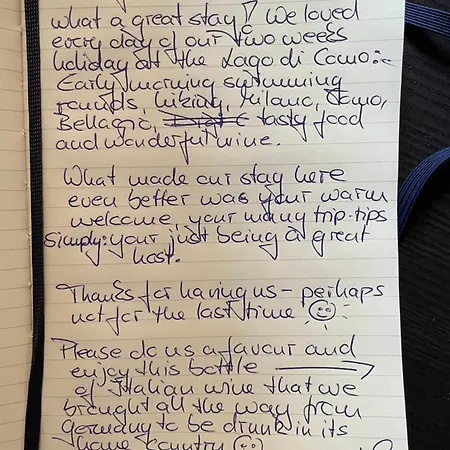 what a great stay! We loved
every day of our two weeks
holiday at the Lago di Como:
Early morning swimming
rounds, hiking, Milano, Como,
Bellagio, tasty food
and wonderful wine.
What made our stay here
even better was your warm
welcome, your many trip-tips
simply: your just being a great
host.
Thanks for having us - perhaps
not for the last time ☺
Please do us a favour and
enjoy this bottle →
of Italian wine that we
brought all the way from
Germany to be drunk in its
home country ☺